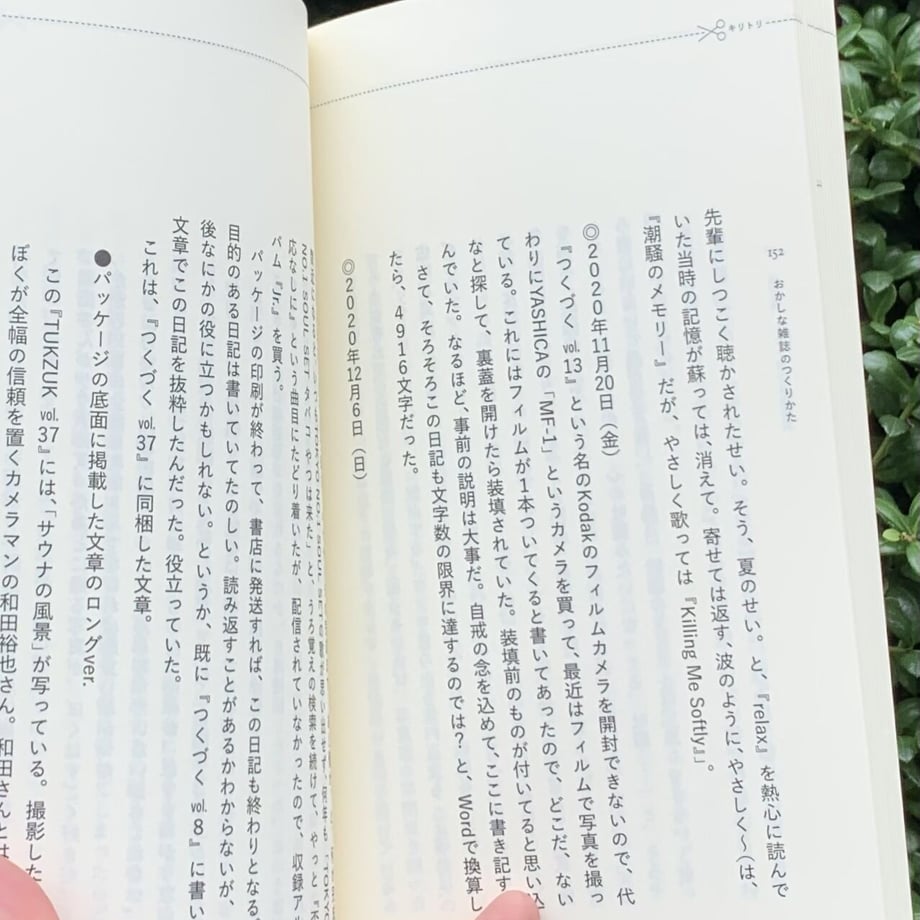 キリトリ
152 おかしな雑誌のつくりかた
先輩にしつこく聴かされたせい。そう、夏のせい。と、『relax』を熱心に読んで
いた当時の記憶が蘇っては、消えて。寄せては返す、波のように、やさしく〜（は、
『潮騒のメモリー』だが、やさしく歌っては『Killing Me Softly』。
◎2020年11月20日（金）
『つくづく vol.13』という名のKodakのフィルムカメラを開封できないので、代
わりにYASHICAの「MF-1」というカメラを買って、最近はフィルムで写真を撮っ
ている。これにはフィルムが1本ついてくると書いてあったので、どこだ、ない
なと探して、裏蓋を開けたら装填されていた。装填前のものが付いてると思い込
んでいた。なるほど、事前の説明は大事だ。自戒の念を込めて、ここに書き記す
さて、そろそろこの日記も文字数の限界に達するのでは？と、Wordで換算し
たら、4916文字だった。
◎2020年12月6日（日）
NO.1 SOUL SET
応なしに』という曲目にたどり着いたが、配信されていなかったので、収録アル
バム『Jr.』を買う。
パッケージの印刷が終わって、書店に発送すれば、この日記も終わりとなる。
目的のある日記は書いていてたのしい。読み返すことがあるかわからないが、
後なにかの役に立つかもしれない。というか、既に『つくづく vol.8』に書い
文章でこの日記を抜粋したんだった。役立っていた。
これは、『つくづく vol.37』に同梱した文章。
●パッケージの底面に掲載した文章のロングver.
この『TUKZUK vol.37』には、「サウナの風景」が写っている。撮影した
ぼくが全幅の信頼を置くカメラマンの和田裕也さん。和田さんとは